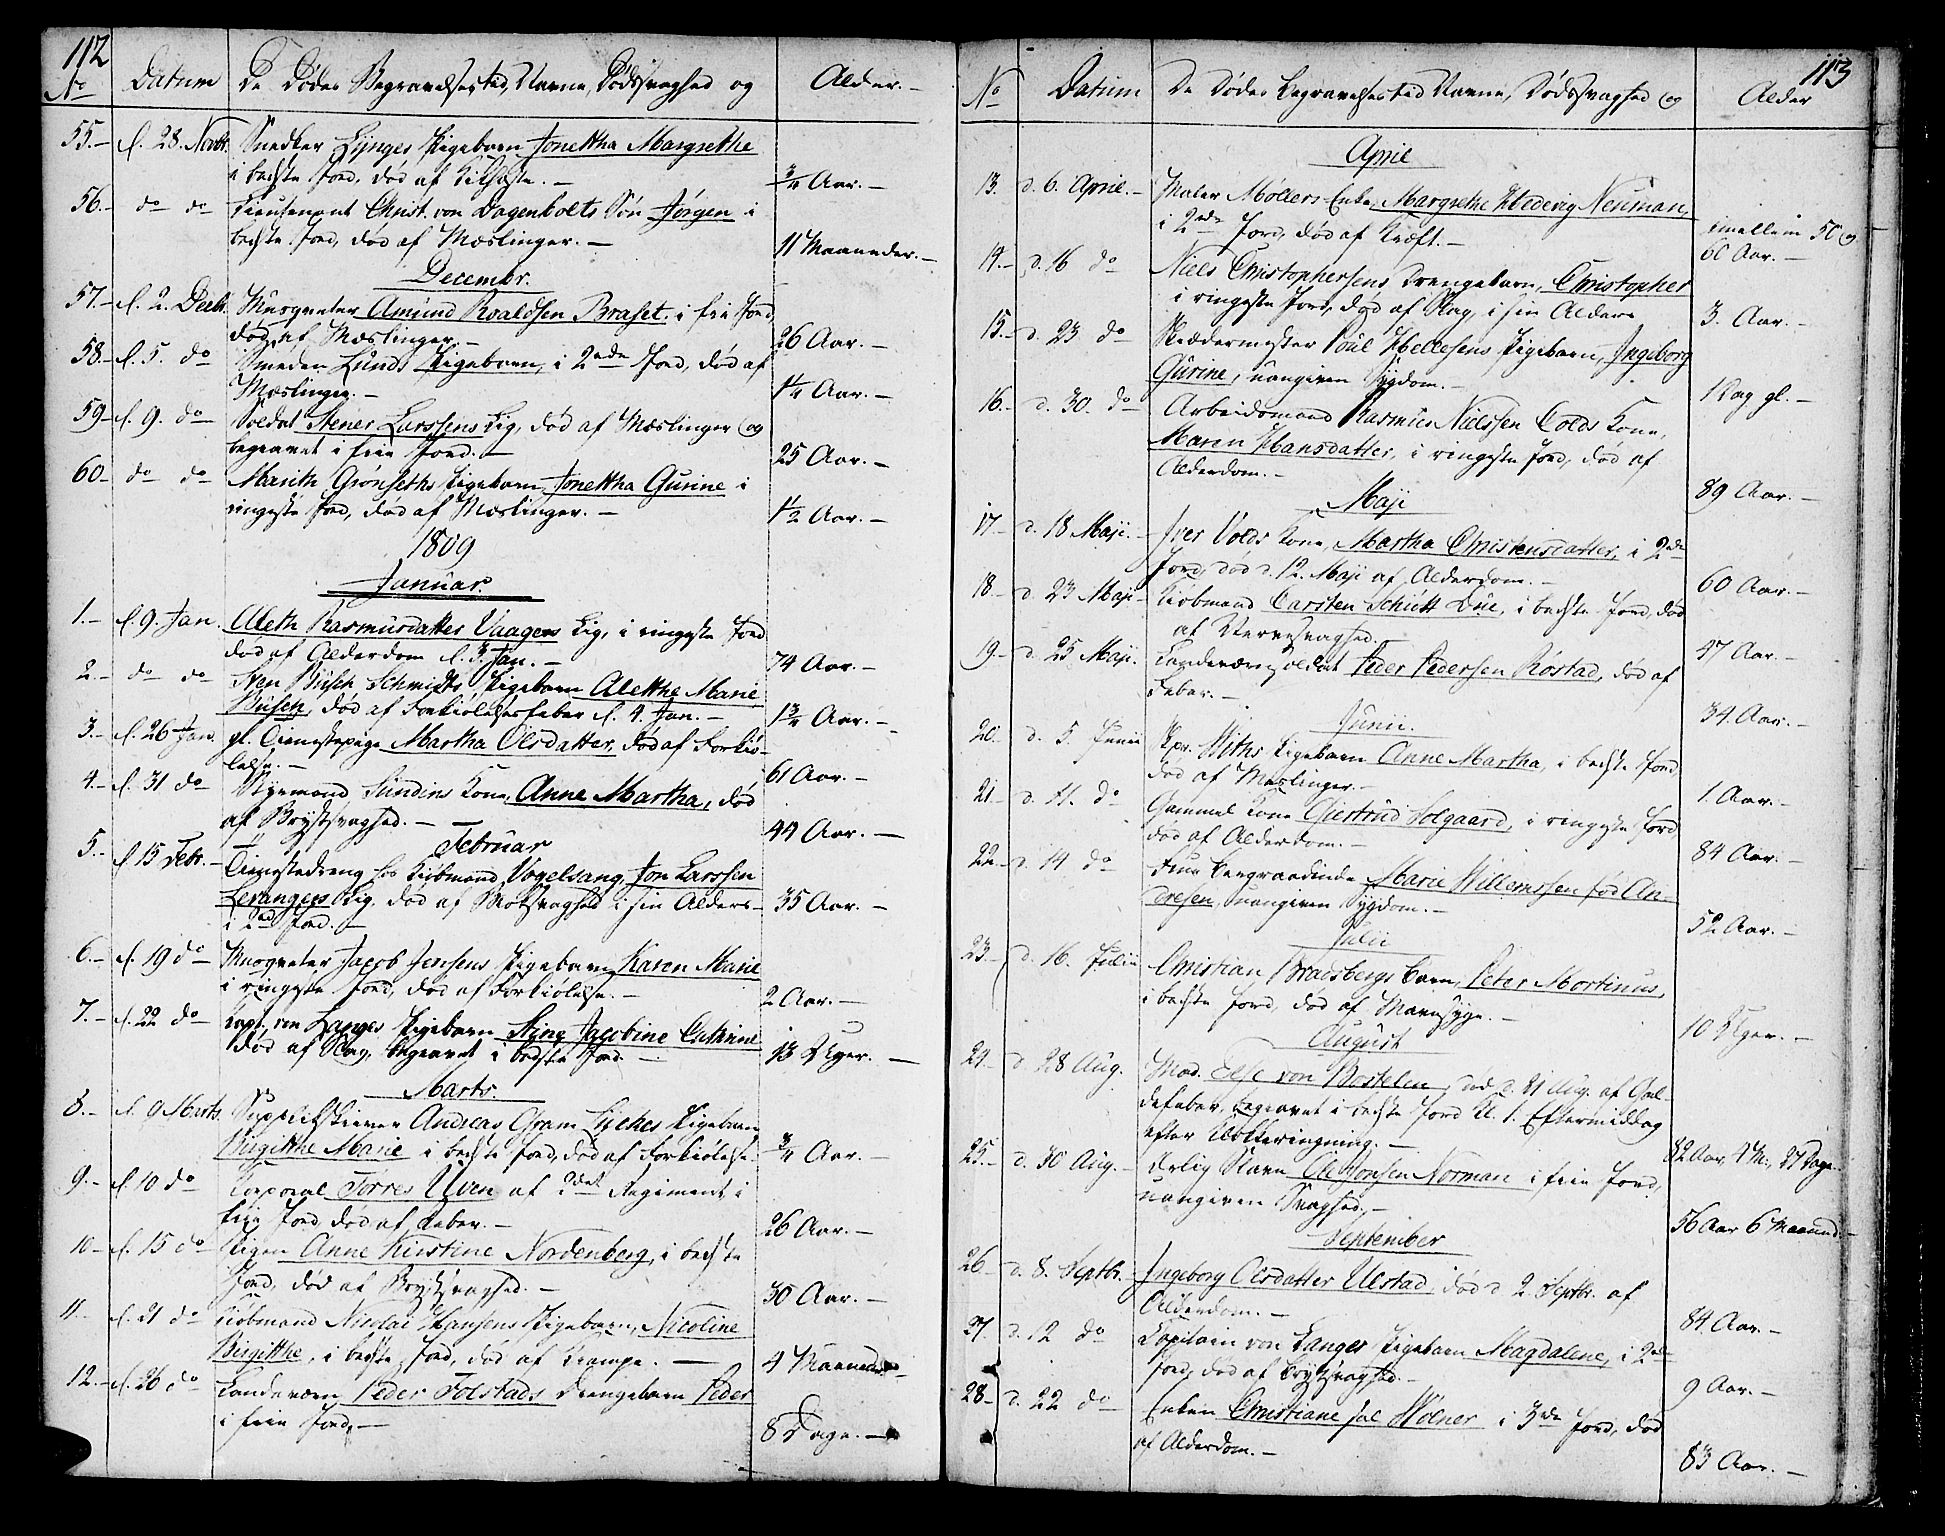 112
No Datum De Dødes Begravelsested, Navne, Dødssvaghed og Alder.
55.- d. 28. Novbr. Snedker Lÿnges Pigebarn Jonettha Margrethe
i beste Jord, død af Kikhoste. - 3/4 Aar. -
56.- do do Lieutenant Christ. von Dagenbolts Søn Jørgen i
beste Jord, død af Mæslinger. - 11 Maaneder. -
Decembr.
57.- d. 2. Decbr. Musqveter Amund Roaldsen Braset i frie Jord,
død af Mæslinger. - 26 Aar. -
58.- d. 5. do Smeden Lunds Pigebarn, i 2den Jord, død af
Mæslinger. - 1/4 Aar. -
59.- d. 9. do Soldat Stener Larssens Lig, død af Mæslinger og
begravet i frie Jord. - 25 Aar. -
60.- do do Marith Grønseths Pigebarn Jonettha Gurine i
ringeste Jord, død af Mæslinger. - 1/2 Aar. -
1809
Januar.
1.- d. 9. Jan. Aleth Rasmusdatter Vaagens Lig, i ringeste Jord
død af Alderdom d. 3. Jan. - 74 Aar. -
2.- do do Busch Schmidts Pigebarn Alethe Marie
Busch, død af Forkiølelsesfeber d. 4. Jan. - 1 3/4 Aar. -
3.- d. 26 Jan. gl. Tienestepige Martha Olsdatter, død af Forkiø-
lelse. - 61 Aar. -
4.- d. 31 do Byemand Sundins Kone, Anne Martha, død
af Brystsvaghed. - 44 Aar. -
Februar
5.- d. 15 Febr. - Tienestedreng hos Kiøbmand Vogelsang, Jon Larssen
Levangers Lig, død af svaghed i sin Alders
i 2den Jord. - 35 Aar. -
6.- d. 19 do - Musqveter Jacob Jensens Pigebarn Karen Marie
i ringeste Jord, død af Forkiølelse. - 2 Aar. -
7.- d. 22 do - Capt. von Langes Pigebarn Stine Jacobine Cathrine
død af Slag, begravet i beste Jord. - 13 Uger. -
Marts.
8.- d. 9 Marts. Andreas Gram Pigebarn
Birgitthe Marie i beste Jord, død af Forkiølelse 3/4 Aar. -
9.- d. 10 do Corporal Torres Uven af 2det Regiment i
frie Jord, død af Feber. - 26 Aar. -
10.- d. 15 do Pigen Anne Kirstine Nordenberg, i beste
Jord, død af Brystsvaghed. - 30 Aar. -
11.- d. 21 do Kiøbmand Nicolai Hansens Pigebarn, Nicoline
Birgitthe, i beste Jord, død af Krampe. - 4 Maaneder -
12.- d. 26 do Landværn Peder Tolstads Drengebarn Peder
i frie Jord, - 8 Dage. -
113
No Datum De Dødes Begravelsested Navne, Dødssvaghed og Alder
April
13. d. 6. April. - Maler Møllers Enke, Margrethe Hedevig Neuman,
i 2den Jord, død af Kræft. - imellem 50 og
60 Aar. -
14.- d. 16 do Niels Christophersens Drengebarn, Christopher
i ringeste Jord, død af Slag, i sin Alders 3. Aar. -
15.- d. 23 do Skrædermester Poul Hellesens Pigebarn, Ingeborg
Gurine, uangiven Sygdom. - 1 Dag gl. -
16.- d. 30. do - Arbeidsmand Rasmus Nielssen Colds Kone,
Maren Hansdatter, i ringeste Jord, død af
Alderdom. - 89 Aar. -
Maji
17.- d. 18 Maji. - Iver Volds Kone, Martha Christensdatter, i 2den
Jord, død d. 12. Maji af Alderdom. - 60 Aar. -
18.- d. 23 Maji - Kiøbmand Carsten Schütt Due, i beste Jord, død
af Nervesvaghed. - 47 Aar. -
19.- d. 25 Maji. Landværnsoldat Peder Pedersen Røstad, død af
Feber. - 34 Aar. -
Junii.
20.- d. 5. Junii Spr. Withs Pigebarn Anne Martha, i beste Jord,
død af Mæslinger. - 1. Aar. -
21.- d. 11. do Gammel Kone Giertrud Solgaard, i ringeste Jord
død af Alderdom. - 84 Aar. -
22.- d. 14 do Marie Willemssen fød An-
dresen, uangiven Sygdom. - 52 Aar. -
Julii
23.- d. 16. Julii Christian Bradsbergs Barn, Peter Mortinus,
i beste Jord, død af Mavesyge. - 10 Uger. -
August
24.- d. 28 Aug. Mad. Else von Bostelen, død d. 21 Aug. af Gal-
defeber, begravet i beste Jord Kl. 1. Eftermiddag
efter Klokkeringning. - 82 Aar, 4 M., 27 Dage
25.- d. 30 Aug. - Ærlig Slave Ole Jonsen Norman i frie Jord,
uangiven Svaghed. - 56 Aar 6 Maaned. -
September
26.- d. 8. Septbr. - Ingeborg Olsdatter Ulstad, død d 2. Septbr. af
Alderdom. - 84 Aar. -
27. d. 12 do Capitain von Langes Pigebarn Magdalene, i 2den
Jord, død af Brystsvaghed. - 9 Aar. -
28.- d. 22 do Enken Christiane sal Wølner i 3die Jord, død
af Alderdom. - 83 Aar. -